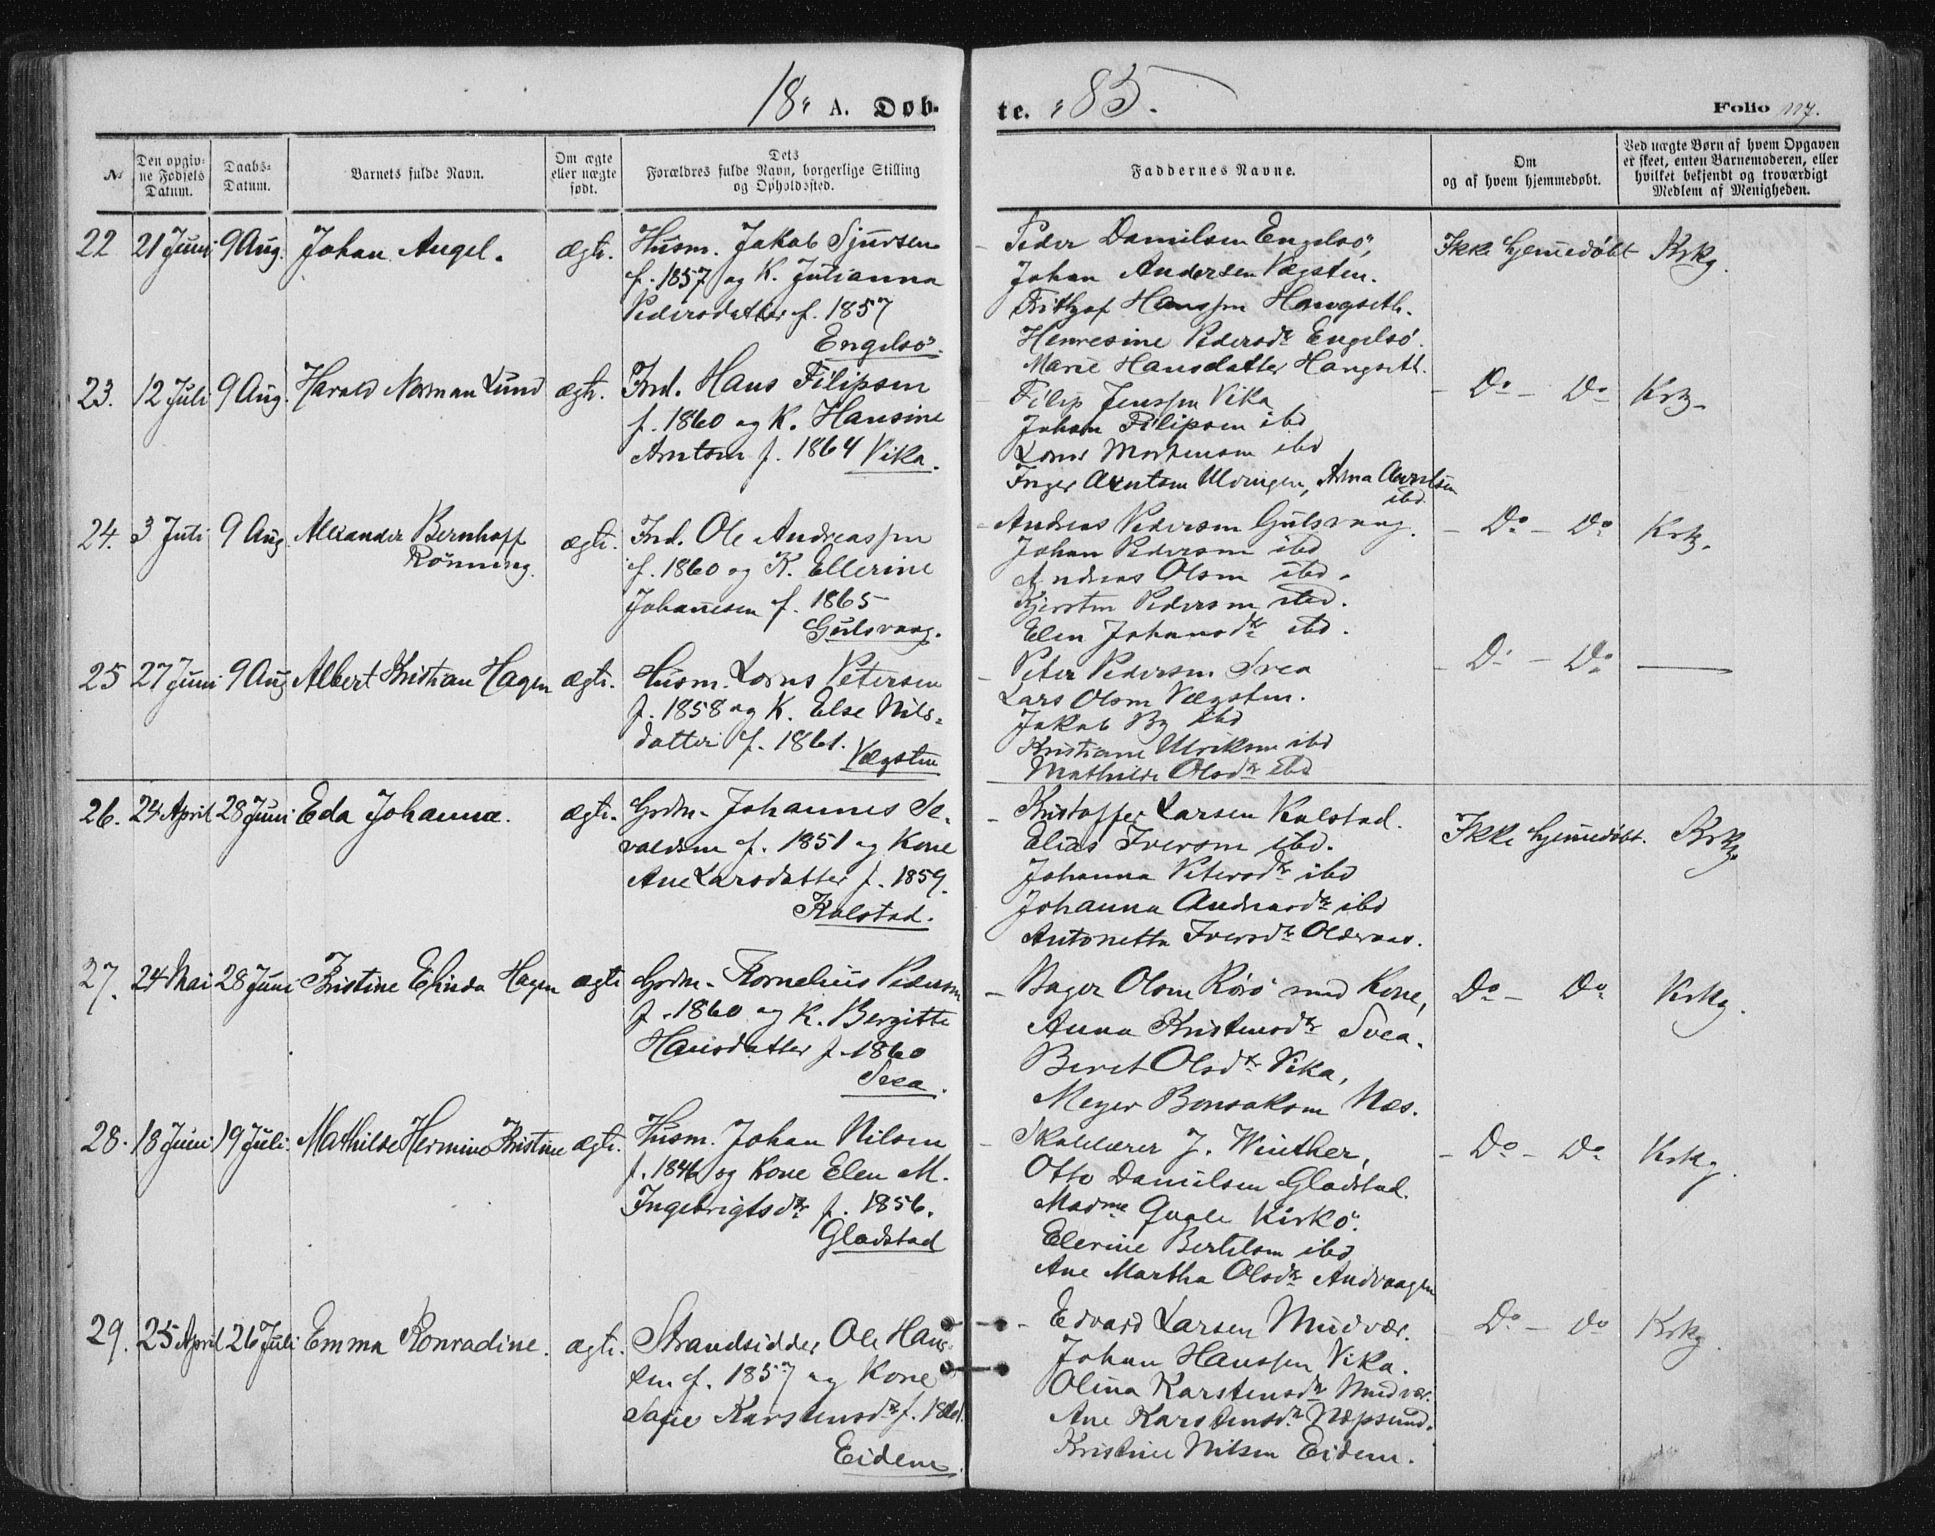 18 A. Døb-
te. 85.
Folio 117.
№
Den opgiv-
ne Fødsels
Datum.
Daabs-
Datum.
Barnets fulde Navn.
Om ægte
eller uægte
født.
Dets
Forældres fulde Navn, borgerlige Stilling
og Opholdssted.
Faddernes Navne.
Om
og af hvem hjemmedøbt.
Ved uægte Børn af hvem Opgaven
er skeet, enten Barnemoderen, eller
hvilket bekjendt og troværdigt
Medlem af Menigheden.
22 21 Juni 9 Aug. Johan Angel. ægte.
Husm. Jakob Sjursen
f. 1857 og K. Julianna
Pedersdatter f. 1857
Engelsø.
Peder Danielsen Engelsø,
Johan Andersen Vægsten.
Frithjof Hanssen Hongseth.
Henresine Pedersdr Engelsø.
Marie Hansdatter Hongseth.
Ikke hjemmedøbt Krkg.
23. 12 Juli 9 Aug. Harald Norman Lund ægte.
Ind. Hans Filipsen
f. 1860 og K. Hansine
Arntsen f. 1864 Vika.
Filip Jenssen Vika
Johan Filipsen ibd
Lorns Mortensen ibd
Inger Arntsen Ulvingen, Anna
ibd.
Do - Do Krkg.
24. 3 Juli 9 Aug. Alexander Bernhoff
Rønning. ægte.
Ind. Ole Andreassen
f. 1860 og K. Ellerine
Johannesen f. 1865
Gulsvaag.
Andreas Pedersen Gulsvaag.
Johan Pedersen ibd
Andreas Olsen ibd.
Kjersten Pedersen ibd.
Elen Johansdr ibd.
- Do - Do Krkg.
25 27 Juni 9 Aug Albert Kristian Hagen ægte.
Husm. Lorns Petersen
f. 1858 og K. Else Nils-
datter f. 1861.
Vægsten
Peter Pedersen Svea
Lars Olsen Vægsten.
Jakob By ibd
Kristiane Ulriksen ibd
Mathilde Olsdr ibd
- Do - Do —
26. 24 April 28 Juni Eda Johanna. ægte.
Grdm. Johannes Se-
valdsen f. 1851 og Kone
Ane Larsdatter f. 1859.
Kalstad.
Kristoffer Larsen Kalstad.
Elias Iversen ibd.
Johanna Petersdr ibd
Johanna Andreasdr ibd
Antonetta Iversdr Oldervas.
Ikke hjemmedøbt. Krkg.
27. 24 Mai 28 Juni Kristine Elinda Hagen ægte
Grdm. Kornelius Pedersen
f. 1860 og K. Bergitte
Hansdatter f. 1860
Svea.
Bager Olsen Rørø med Kone,
Anna Kristensdr Svea.
Beret Olsdr Vika,
Meyer Bonsaksen Næs.
Do - Do Krkg.
28. 18 Juni 19 Juli. Mathilde Hermine Kristine ægte.
Husm. Johan Nilsen
f. 1846 og Kone Elen M.
Ingebrigtsdr f. 1856.
Gladstad
Skolelærer J. Winther,
Otto Danielsen Gladstad.
Madme Qvale Kirkø.
Elerine Bertelsen ibd
Ane Martha Olsdr Andvaagen
- Do - Do Krkg.
29. 25 April 26 Juli Emma Konradine. ægte.
Strandsidder Ole Han-
sen f. 1857 og Kone
Sofie Karstensdr f. 1861.
Eidem.
- Edvard Larsen Mudvær.
Johan Hanssen Vika.
Olina Karstensdr Mudvær.
Ane Karstensdr
Kristine Nilsen Eidem.
- Do - do Krkg.